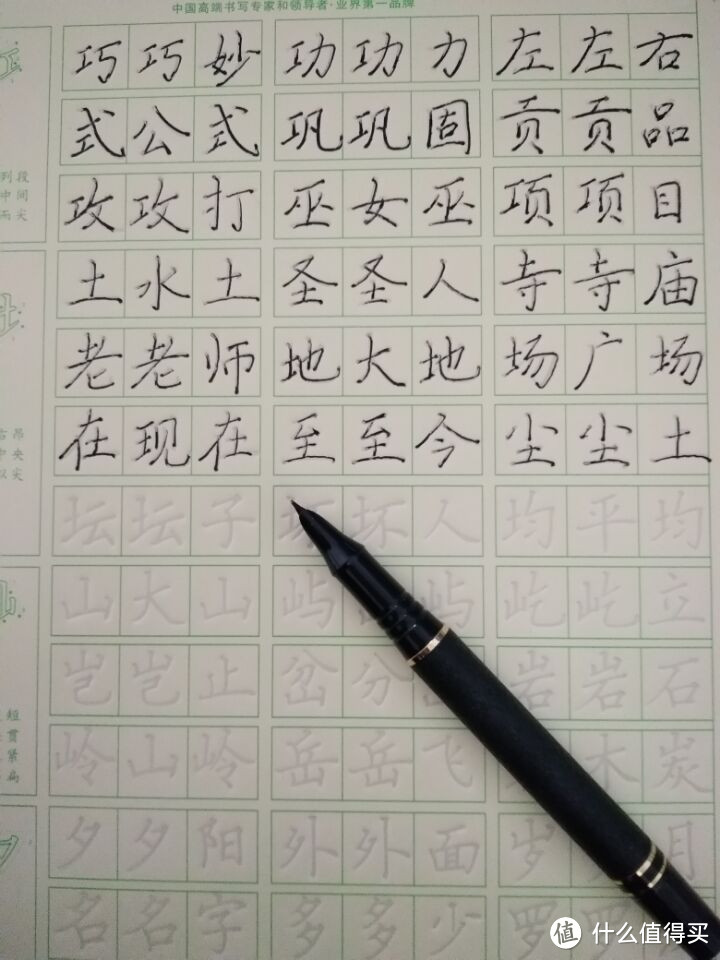 中国高端书写专家和领导者·业界第一品牌
巧巧妙 功功力 左左右
式公式 巩巩固 贡贡品
列段
攻攻打 巫女巫 项项目
中间
两尖
土水土 圣圣人 寺寺庙
老老师 地大地 场广场
在现在 至至今 尘尘土
右昂
中央
坛坛子 坏坏人 均平均
山大山 屿屿 屹屹立
岂岂止 岔分 岩岩石
短
贯
紧
岭山岭 岳岳飞 木炭
夕夕阳 外外面 岁目
名名字 多多少 罗
值 什么值得买